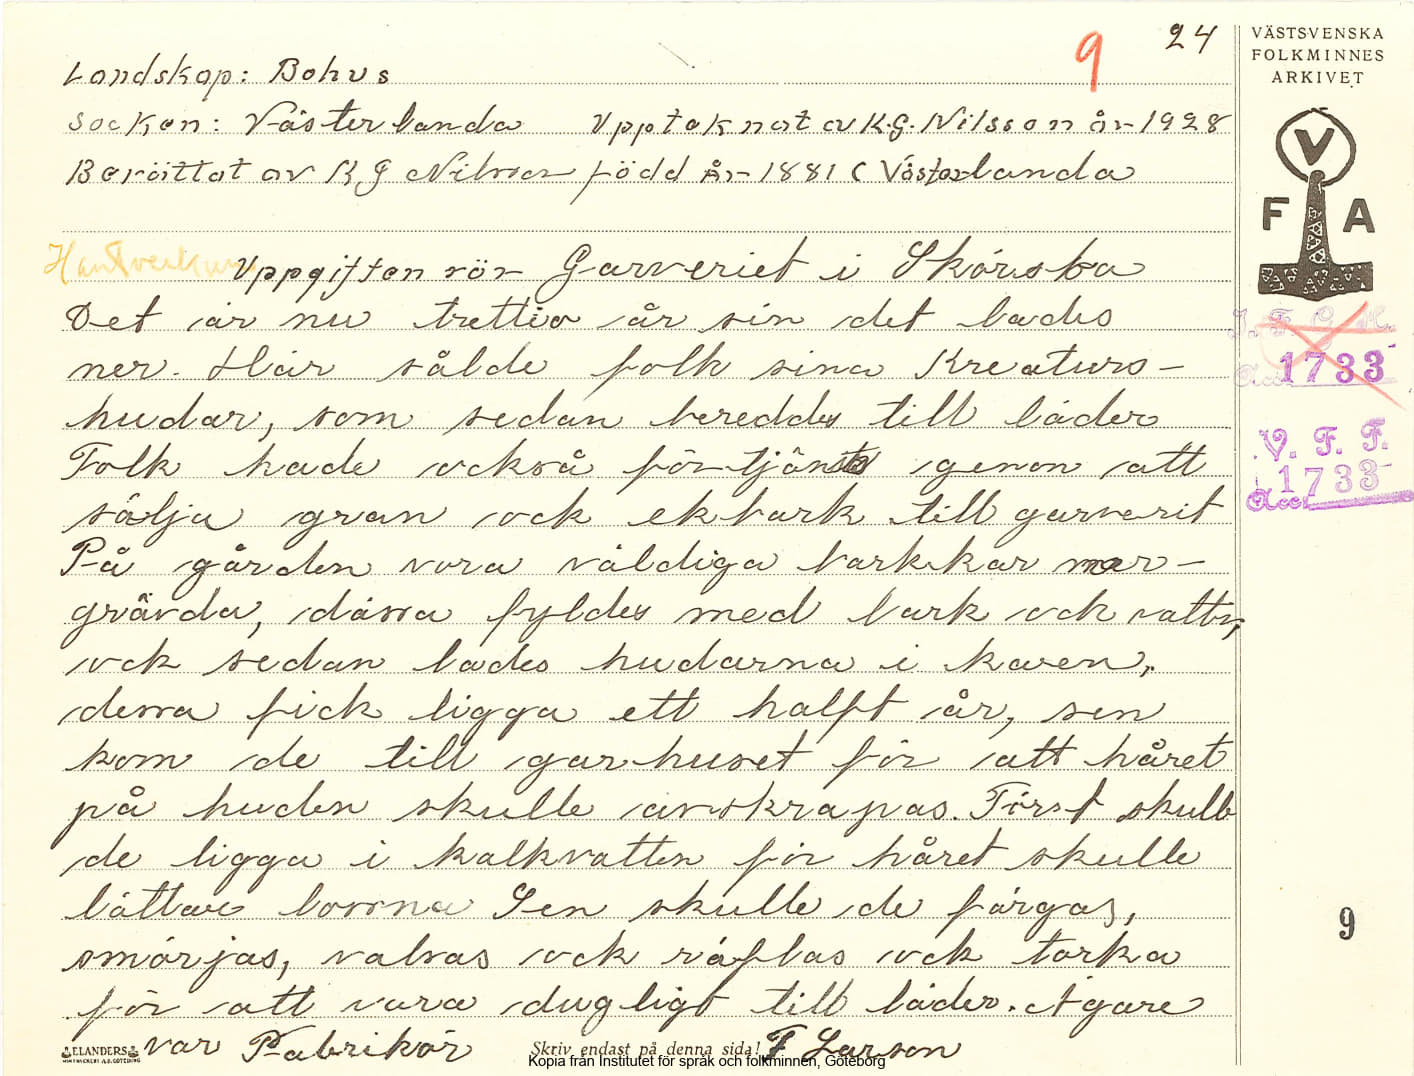 9 24
Landskap: Bohus
Socken: Västerlanda Uppteknat av K.G. Nilsson år 1928
Berättat av K G Nilsson född år 1881 i Västerlanda
Hantverkare Uppgiften rör Garveriet i Skörsbo
Det är nu trettio år sin det lades
ner. Här sålde folk sina Kreaturs-
hudar, som sedan bereddes till läder
Folk hade också förtjänst genon att
sälja gran ock ekbark till garverit
På gården vora väldiga barkkar ner-
grävda, dässa fyldes med bark och vatten,
ock sedan lades hudarna i karen,
dessa fick ligga ett halft år, sen
kom de till garhuset för att håret
på huden skulle avskrapas. Först skulle
de ligga i kalkvatten för håret skulle
lättare lossna Sen skulle de färgas,
smörjas, valsas ock räflas ock torka
för att vara dugligt till läder. Ägare
var Fabrikör F Larson
ELANDERS
Skriv endast på denna sida!
Kopia från Institutet för språk och folkminnen, Göteborg
VÄSTSVENSKA
FOLKMINNES
ARKIVET
V
F A
I. F. G. H.
Acc. 1733
V. F. F.
Acc. 1733
9